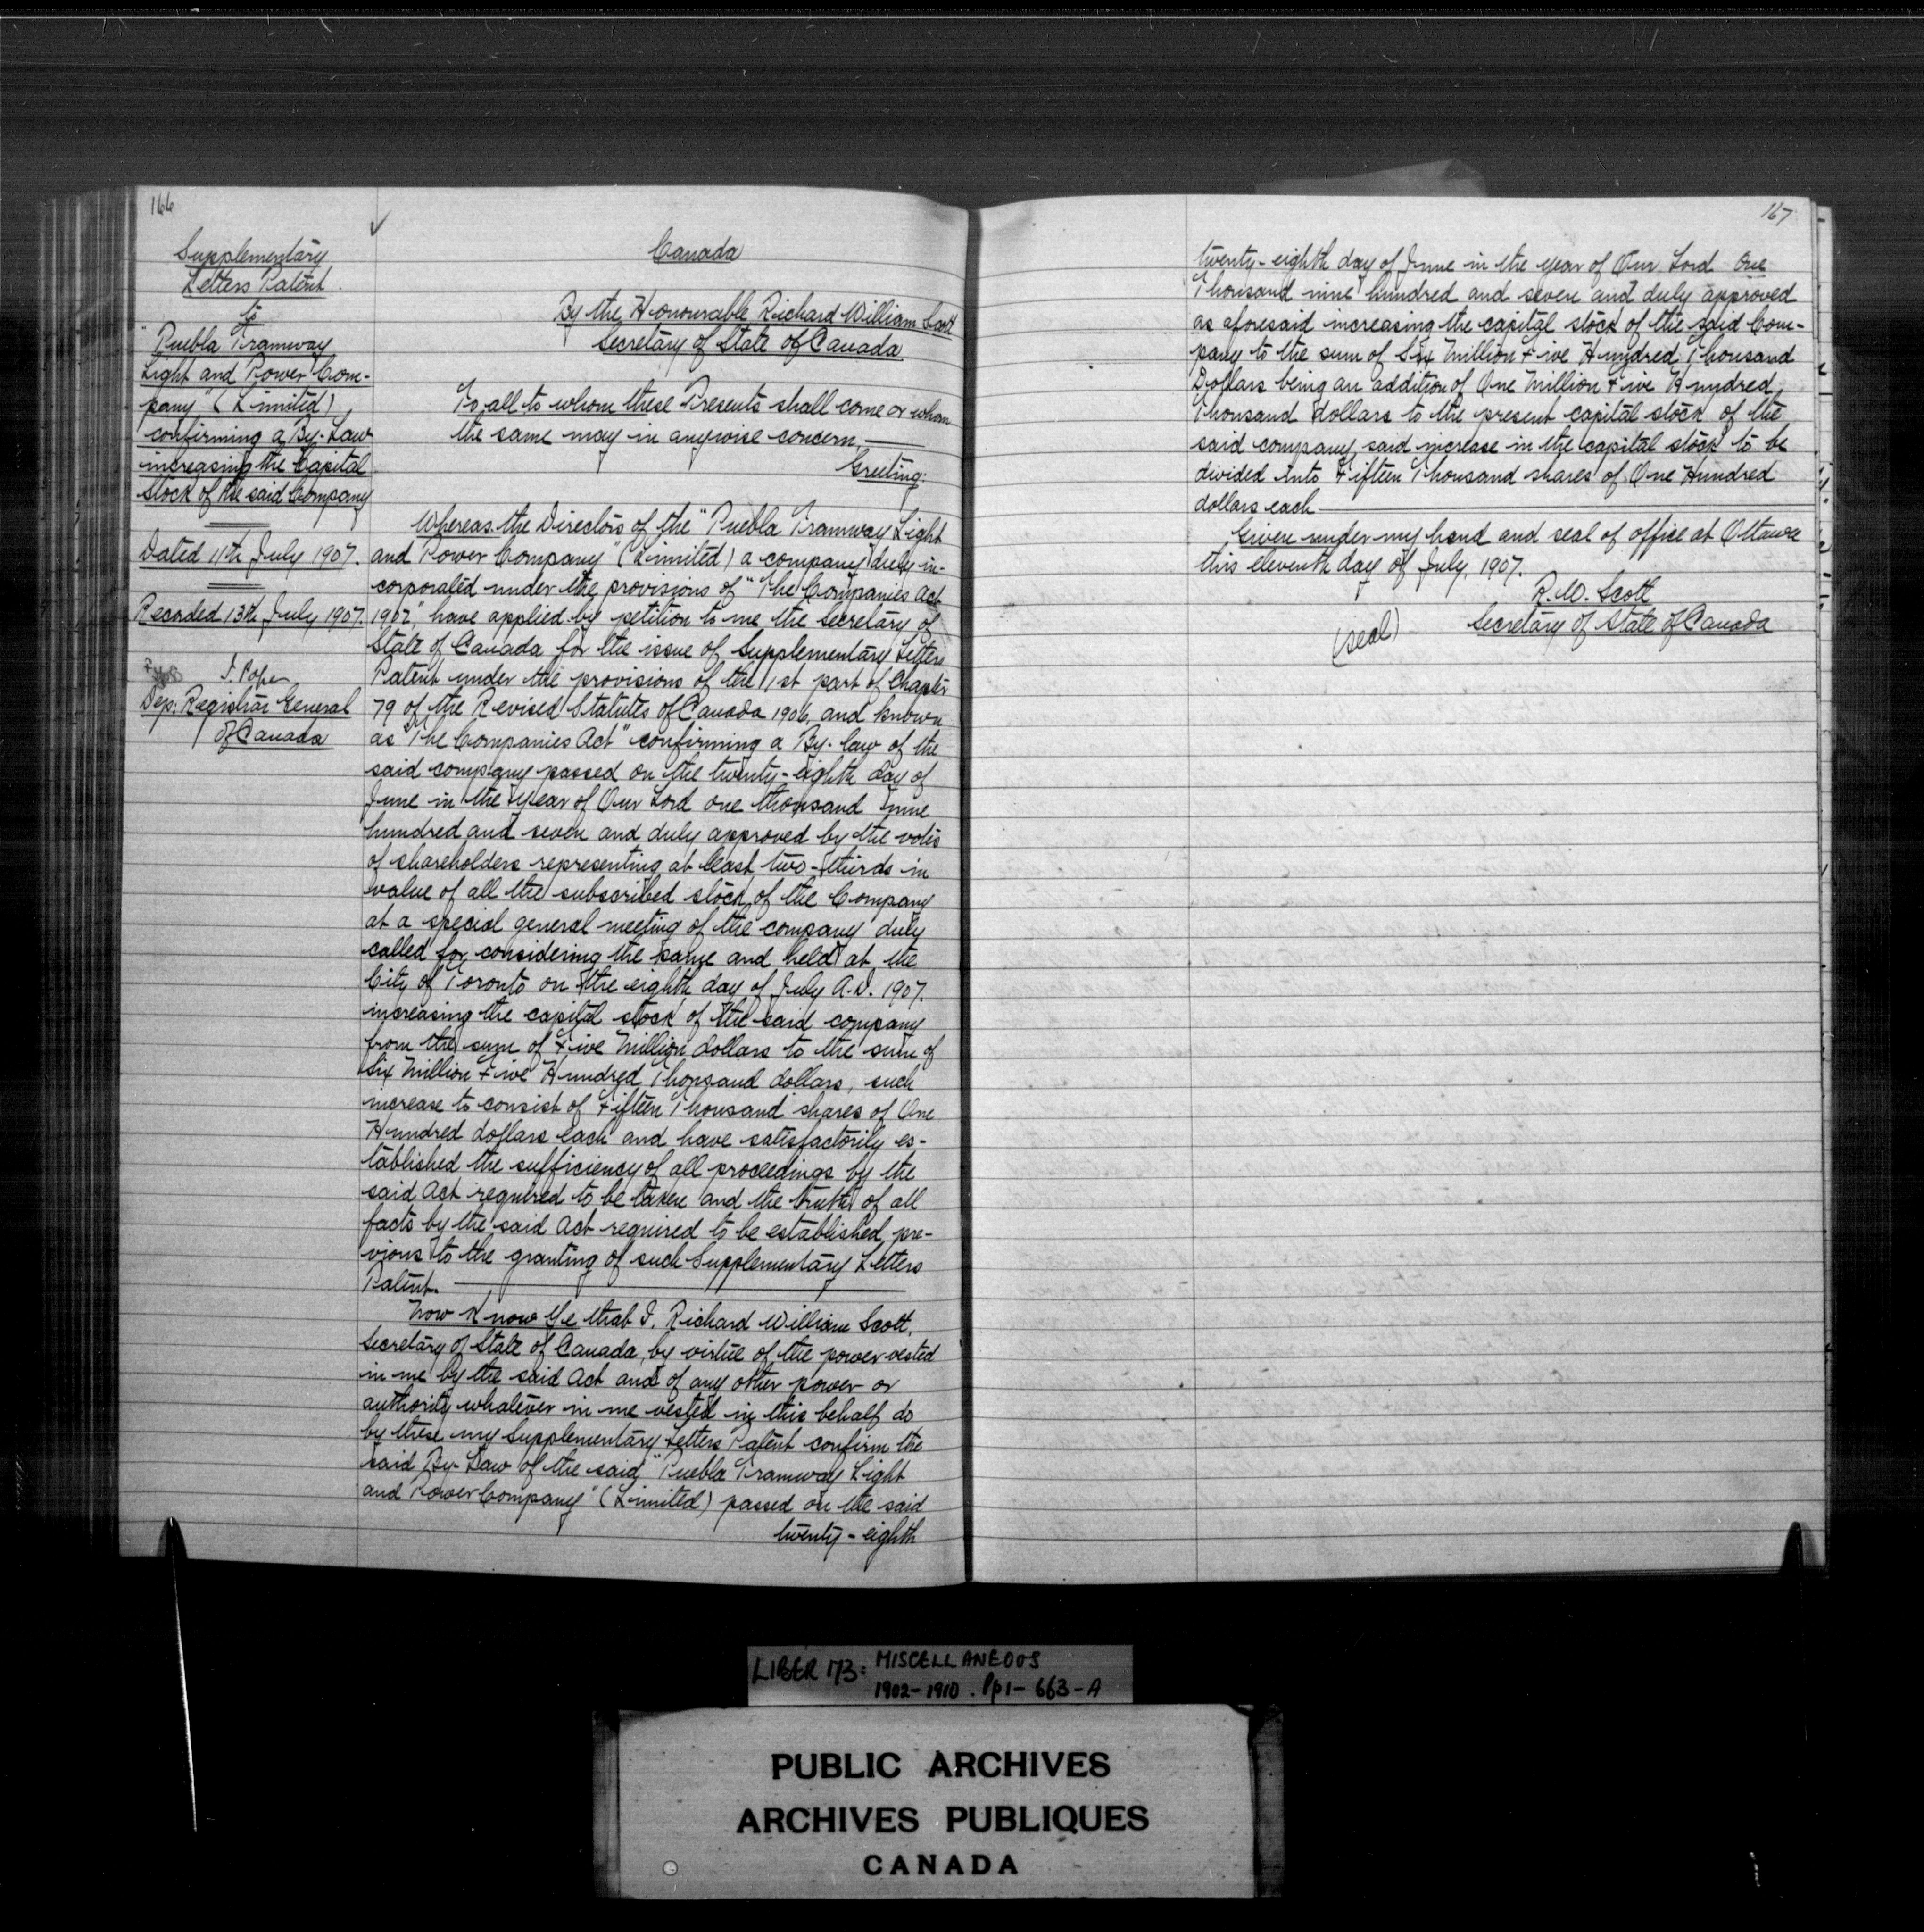 166
Supplementary
Letters Patent
to
"Puebla Tramway
Light and Power Com-
pany" (Limited)
confirming a By-Law
increasing the Capital
Stock of the said Company
Dated 11th July 1907.
Recorded 13th July 1907.
J. Pope
Dep: Registrar General
of Canada
Canada
By the Honourable Richard William Scott
Secretary of State of Canada
To all to whom these Presents shall come or whom
the same may in anywise concern,—
Greeting:
Whereas the Directors of the "Puebla Tramway Light
and Power Company" (Limited) a company duly in-
corporated under the provisions of "The Companies Act
1902", have applied by petition to me the Secretary of
State of Canada for the issue of Supplementary Letters
Patent under the provisions of the 1st part of Chapter
79 of the Revised Statutes of Canada 1906, and known
as "The Companies Act" confirming a By-law of the
said company passed on the twenty-eighth day of
June in the year of Our Lord one thousand nine
hundred and seven and duly approved by the votes
of shareholders representing at least two-thirds in
value of all the subscribed stock of the Company
at a special general meeting of the company duly
called for considering the same and held at the
City of Toronto on the eighth day of July A.D. 1907.
increasing the capital stock of the said company
from the sum of Five Million dollars to the sum of
Six Million Five Hundred Thousand dollars, such
increase to consist of Fifteen Thousand shares of One
Hundred dollars each and have satisfactorily es-
tablished the sufficiency of all proceedings by the
said Act required to be taken and the truth of all
facts by the said Act required to be established pre-
vious to the granting of such Supplementary Letters
Patent.
Now Know Ye that I, Richard William Scott,
Secretary of State of Canada, by virtue of the power vested
in me by the said Act and of any other power or
authority whatever in me vested in this behalf do
by these my Supplementary Letters Patent confirm the
said By-Law of the said "Puebla Tramway Light
and Power Company" (Limited) passed on the said
twenty-eighth
167
twenty-eighth day of June in the year of Our Lord One
Thousand nine hundred and seven and duly approved
as aforesaid increasing the capital stock of the said Com-
pany to the sum of Six Million Five Hundred Thousand
Dollars being an addition of One Million Five Hundred
Thousand dollars to the present capital stock of the
said company, said increase in the capital stock to be
divided into Fifteen Thousand shares of One Hundred
dollars each
Given under my hand and seal of office at Ottawa
this eleventh day of July, 1907.
R.W. Scott
(seal) Secretary of State of Canada
LIBER 173: MISCELLANEOUS
1902-1910. Pp1-663-A
PUBLIC ARCHIVES
ARCHIVES PUBLIQUES
CANADA